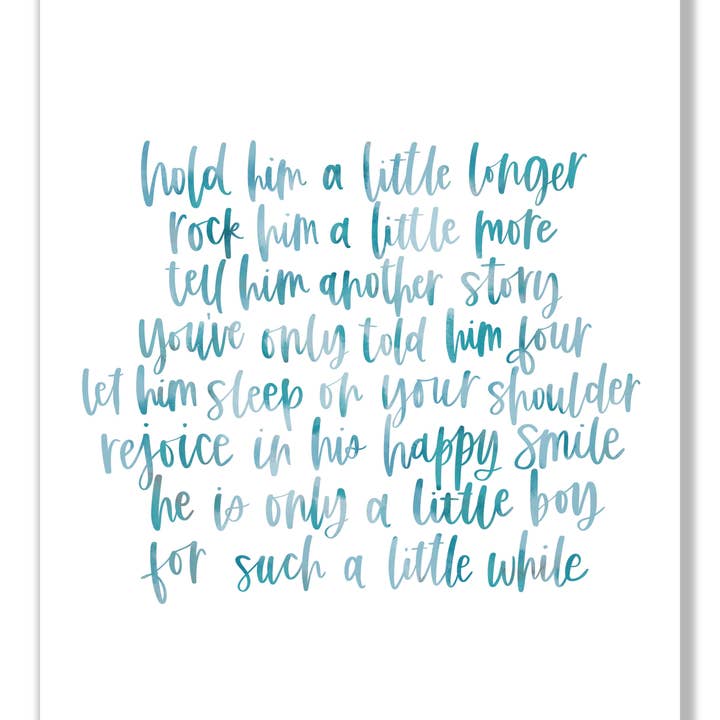 hold him a little longer
rock him a little more
tell him another story
you've only told him four
let him sleep on your shoulder
rejoice in his happy smile
he is only a little boy
for such a little while